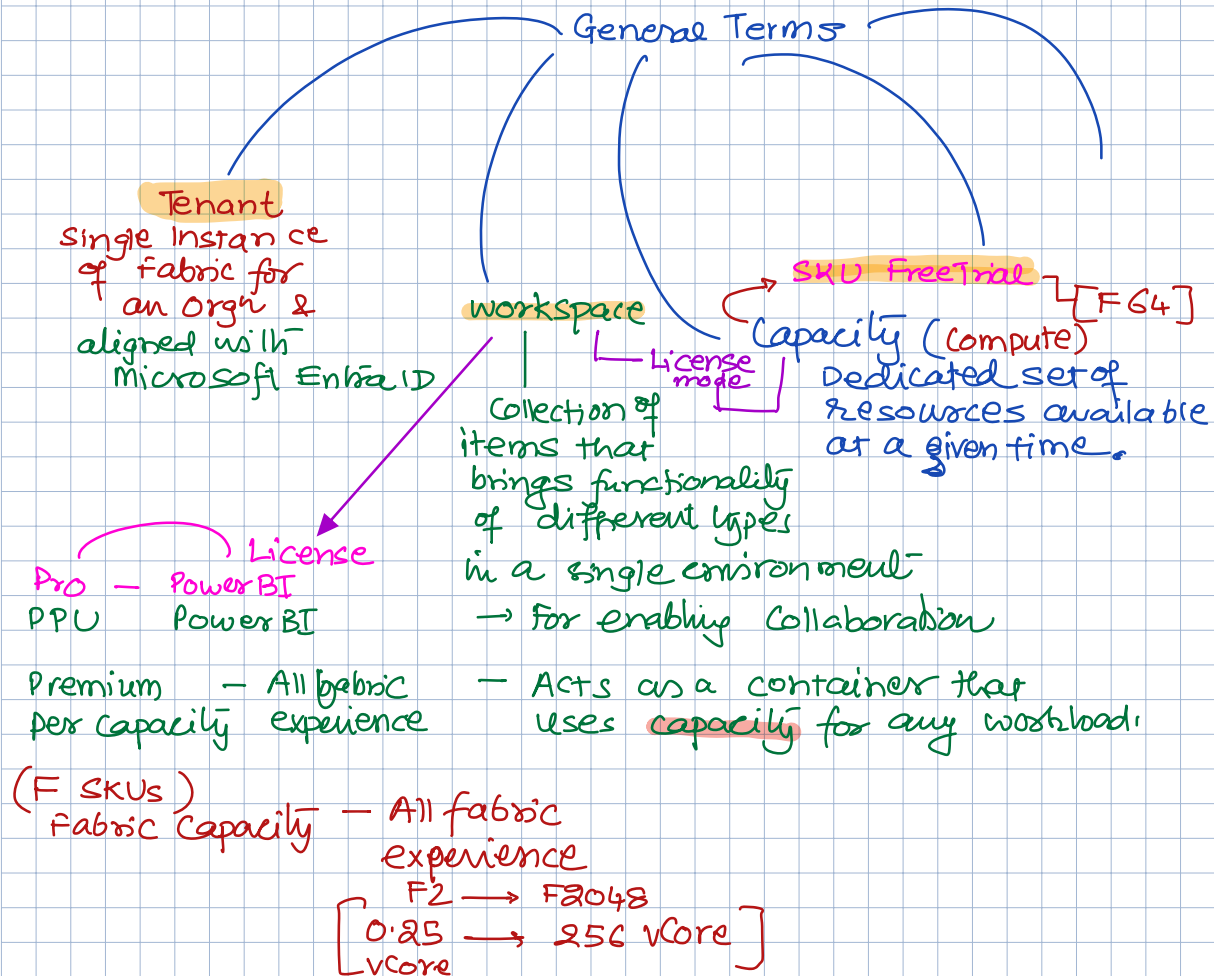 General Terms
Tenant
Single Instance
of Fabric for
an orgn &
aligned with
Microsoft Entra ID
workspace
License
mode
Collection of
items that
brings functionality
of different types
in a single environment
→ For enabling Collaboration
- Acts as a container that
uses capacity for any workload.
SKU FreeTrial
[F64]
Capacity (compute)
Dedicated set of
resources available
at a given time.
License
Pro - PowerBI
PPU PowerBI
Premium - All fabric
per capacity experience
(F SKUs)
Fabric Capacity - All fabric
experience
F2 → F2048
[0.25 → 256 vCore]
vCore